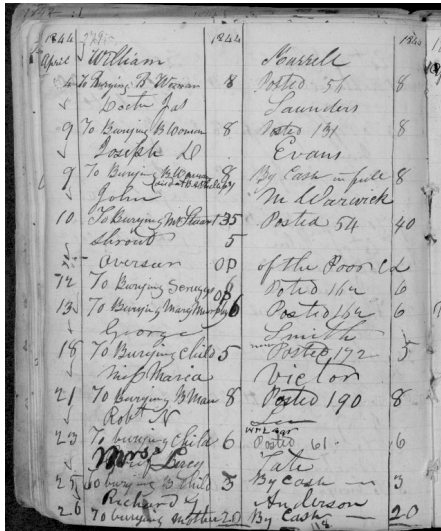 1844 1844 184
April William Harrell
4 To Burying B Woman 8 Posted 54 8
Doctr Jas Saunders
9 To Burying B Woman 8 Posted 131 8
Joseph D. Evans
9 To Burying B Woman 8 By Cash in full 8
John M Warwick
10 To Burying Mr Stuart 35 Posted 54 40
Shroud 5
Overseer OP of the Poor
12 To Burying 6 Posted 162 6
13 To Burying Mary Murphy 6 Posted 162 6
George Smith
18 To Burying Child 5 Posted 172 5
Miss Maria Victor
21 To Burying B Man 8 Posted 190 8
Robt N
23 To burying Child 6 Posted 61 6
Mrs Lucy Tate
25 To burying B Child 3 By Cash 3
Richard Anderson
26 To burying Mother 20 By Cash 20